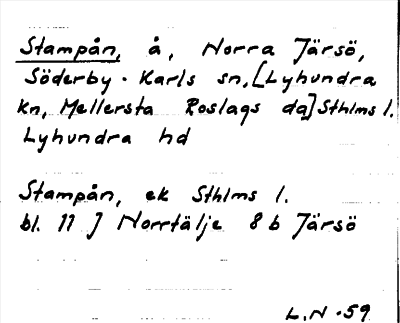 Stampån, å, Norra Järsö,
Söderby-Karls sn, [Lyhundra
kn, Mellersta Roslags da] Sthlms l.
Lyhundra hd
Stampån, ek Sthlms l.
bl. 11 J Norrtälje 8 b Järsö
L.N -59